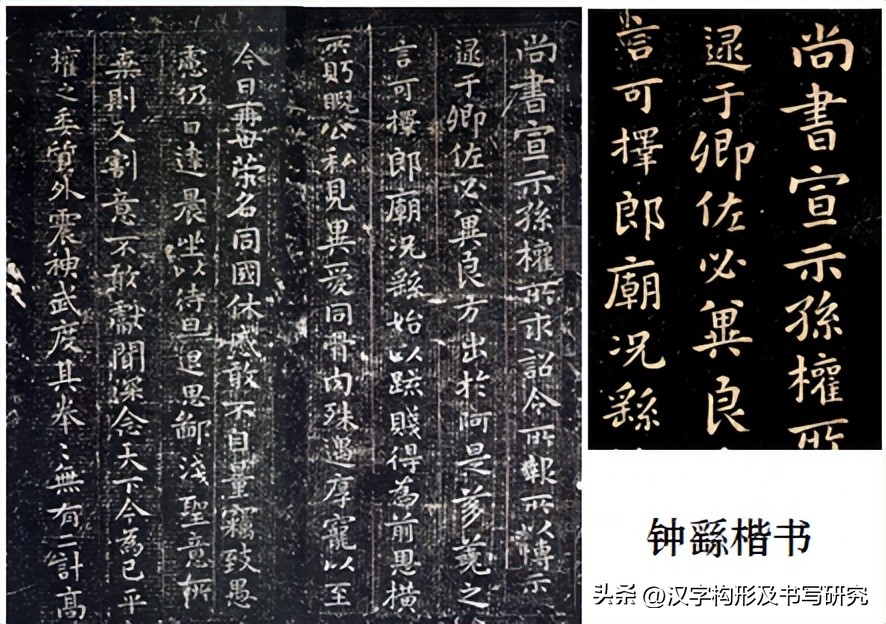 尚書宣示孫權所求詔令所報所以博示
逮于卿佐必冀良方出於阿是芻蕘之
言可擇郎廟況繇始以疏賤得為前恩橫
所眄睨公私見異愛同骨肉殊遇厚寵以至
今日再世榮名同國休慼敢不自量竊致愚
慮仍日達晨坐以待旦退思鄙淺聖意所
棄則又割意不敢獻聞深念天下今為已平
權之委質外震神武度其拳〻無有二計高
尚書宣示孫權所
逮于卿佐必冀良
言可擇郎廟況繇
钟䌛楷书
头条 @汉字构形及书写研究